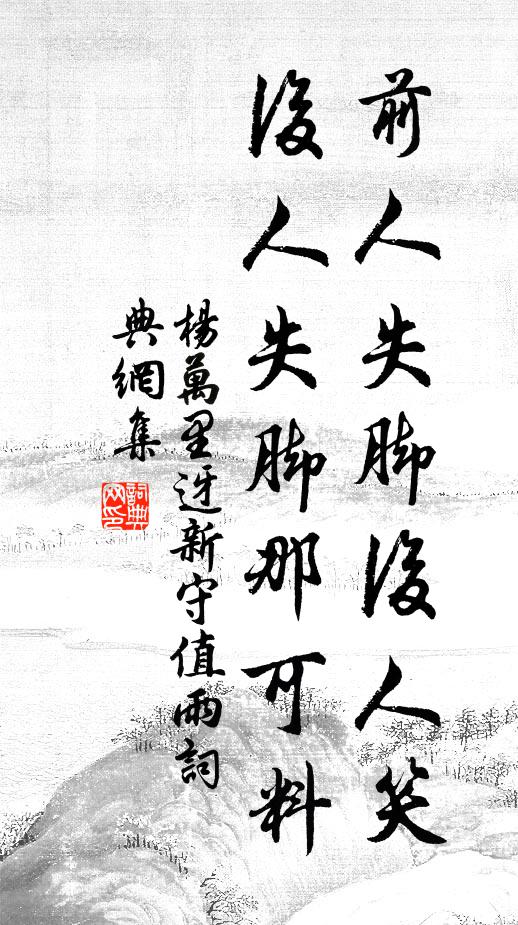 前人失脚後人笑
後人失脚那可料
楊萬里迓新守值雨詞
典網集
詞典
网印